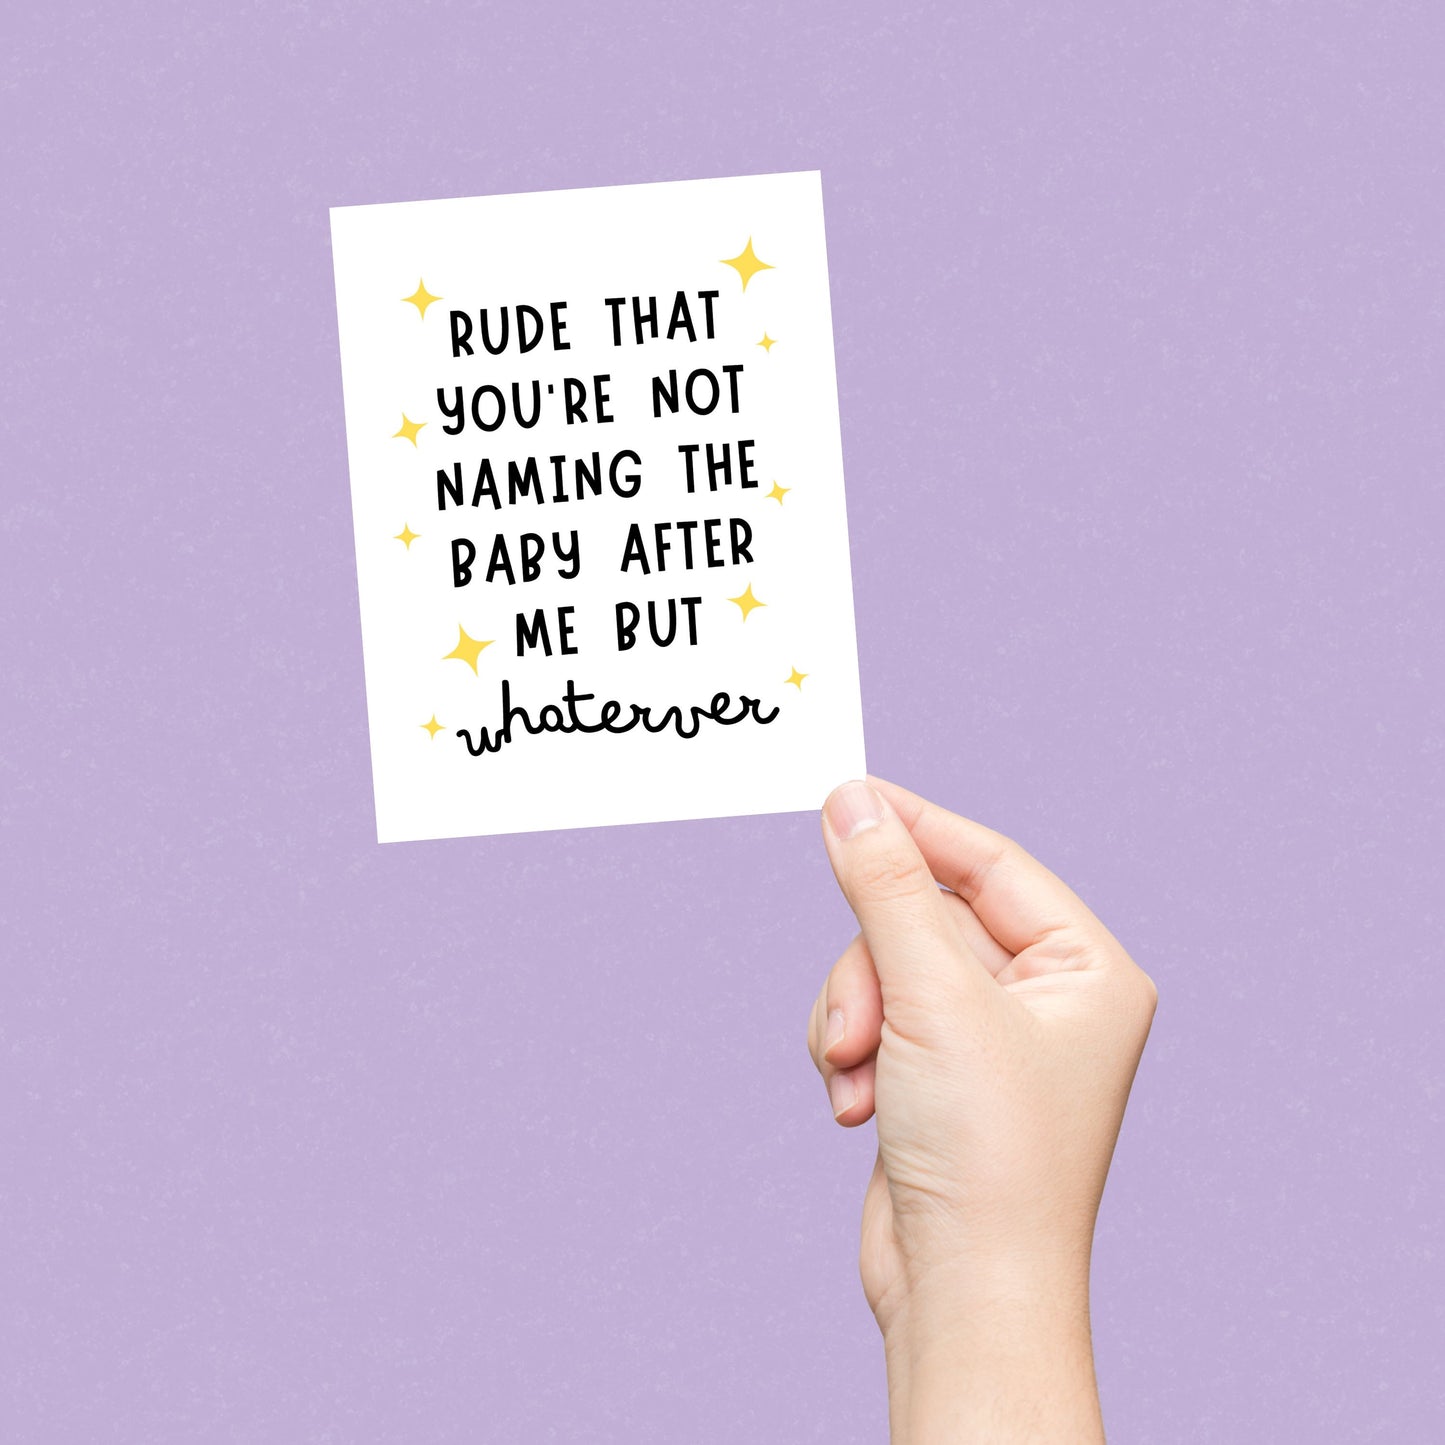 RUDE THAT
YOU'RE NOT
NAMING THE
BABY AFTER
ME BUT
whaterver